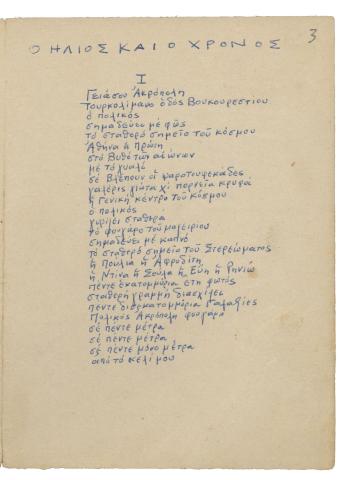 3
Ο ΗΛΙΟΣ ΚΑΙ Ο ΧΡΟΝΟΣ
I
Γειάσου Ἀκρόπολη
Τουρκολίμανο ὁδὸς Βουκουρεστίου
ὁ πολικὸς
σημαδεύει μὲ φῶς
τὸ σταθερὸ σημεῖο τοῦ κόσμου
Ἀθήνα ἡ πρώτη
στὸ Βυθὸ τῶν αἰώνων
μὲ τὸ γυαλὶ
σὲ βλέπουν οἱ ψαροτουφεκάδες
γαλέρις γιώτα χὶ πορνεῖα κρυφὰ
ἡ Γενικὴ κέντρο τοῦ κόσμου
ὁ πολικὸς
γυρίζει σταθερὰ
τὸ φουγάρο τοῦ μαγειρίου
σημαδεύει μὲ καπνὸ
τὸ σταθερὸ σημεῖο τοῦ Στερεώματος
ἡ Πούλια ἡ Ἀφροδίτη
ἡ Ντίνα ἡ Σούλα ἡ Εύη ἡ Ρηνιώ
πέντε ἑκατομμύρια ἔτη φωτὸς
σταθερὴ γραμμὴ διασχίζει
πέντε δισεκατομμύρια Γαλαξίες
Πολικὸς Ἀκρόπολη φουγάρο
σὲ πέντε μέτρα
σὲ πέντε μέτρα
σὲ πέντε μόνο μέτρα
ἀπὸ τὸ κελί μου